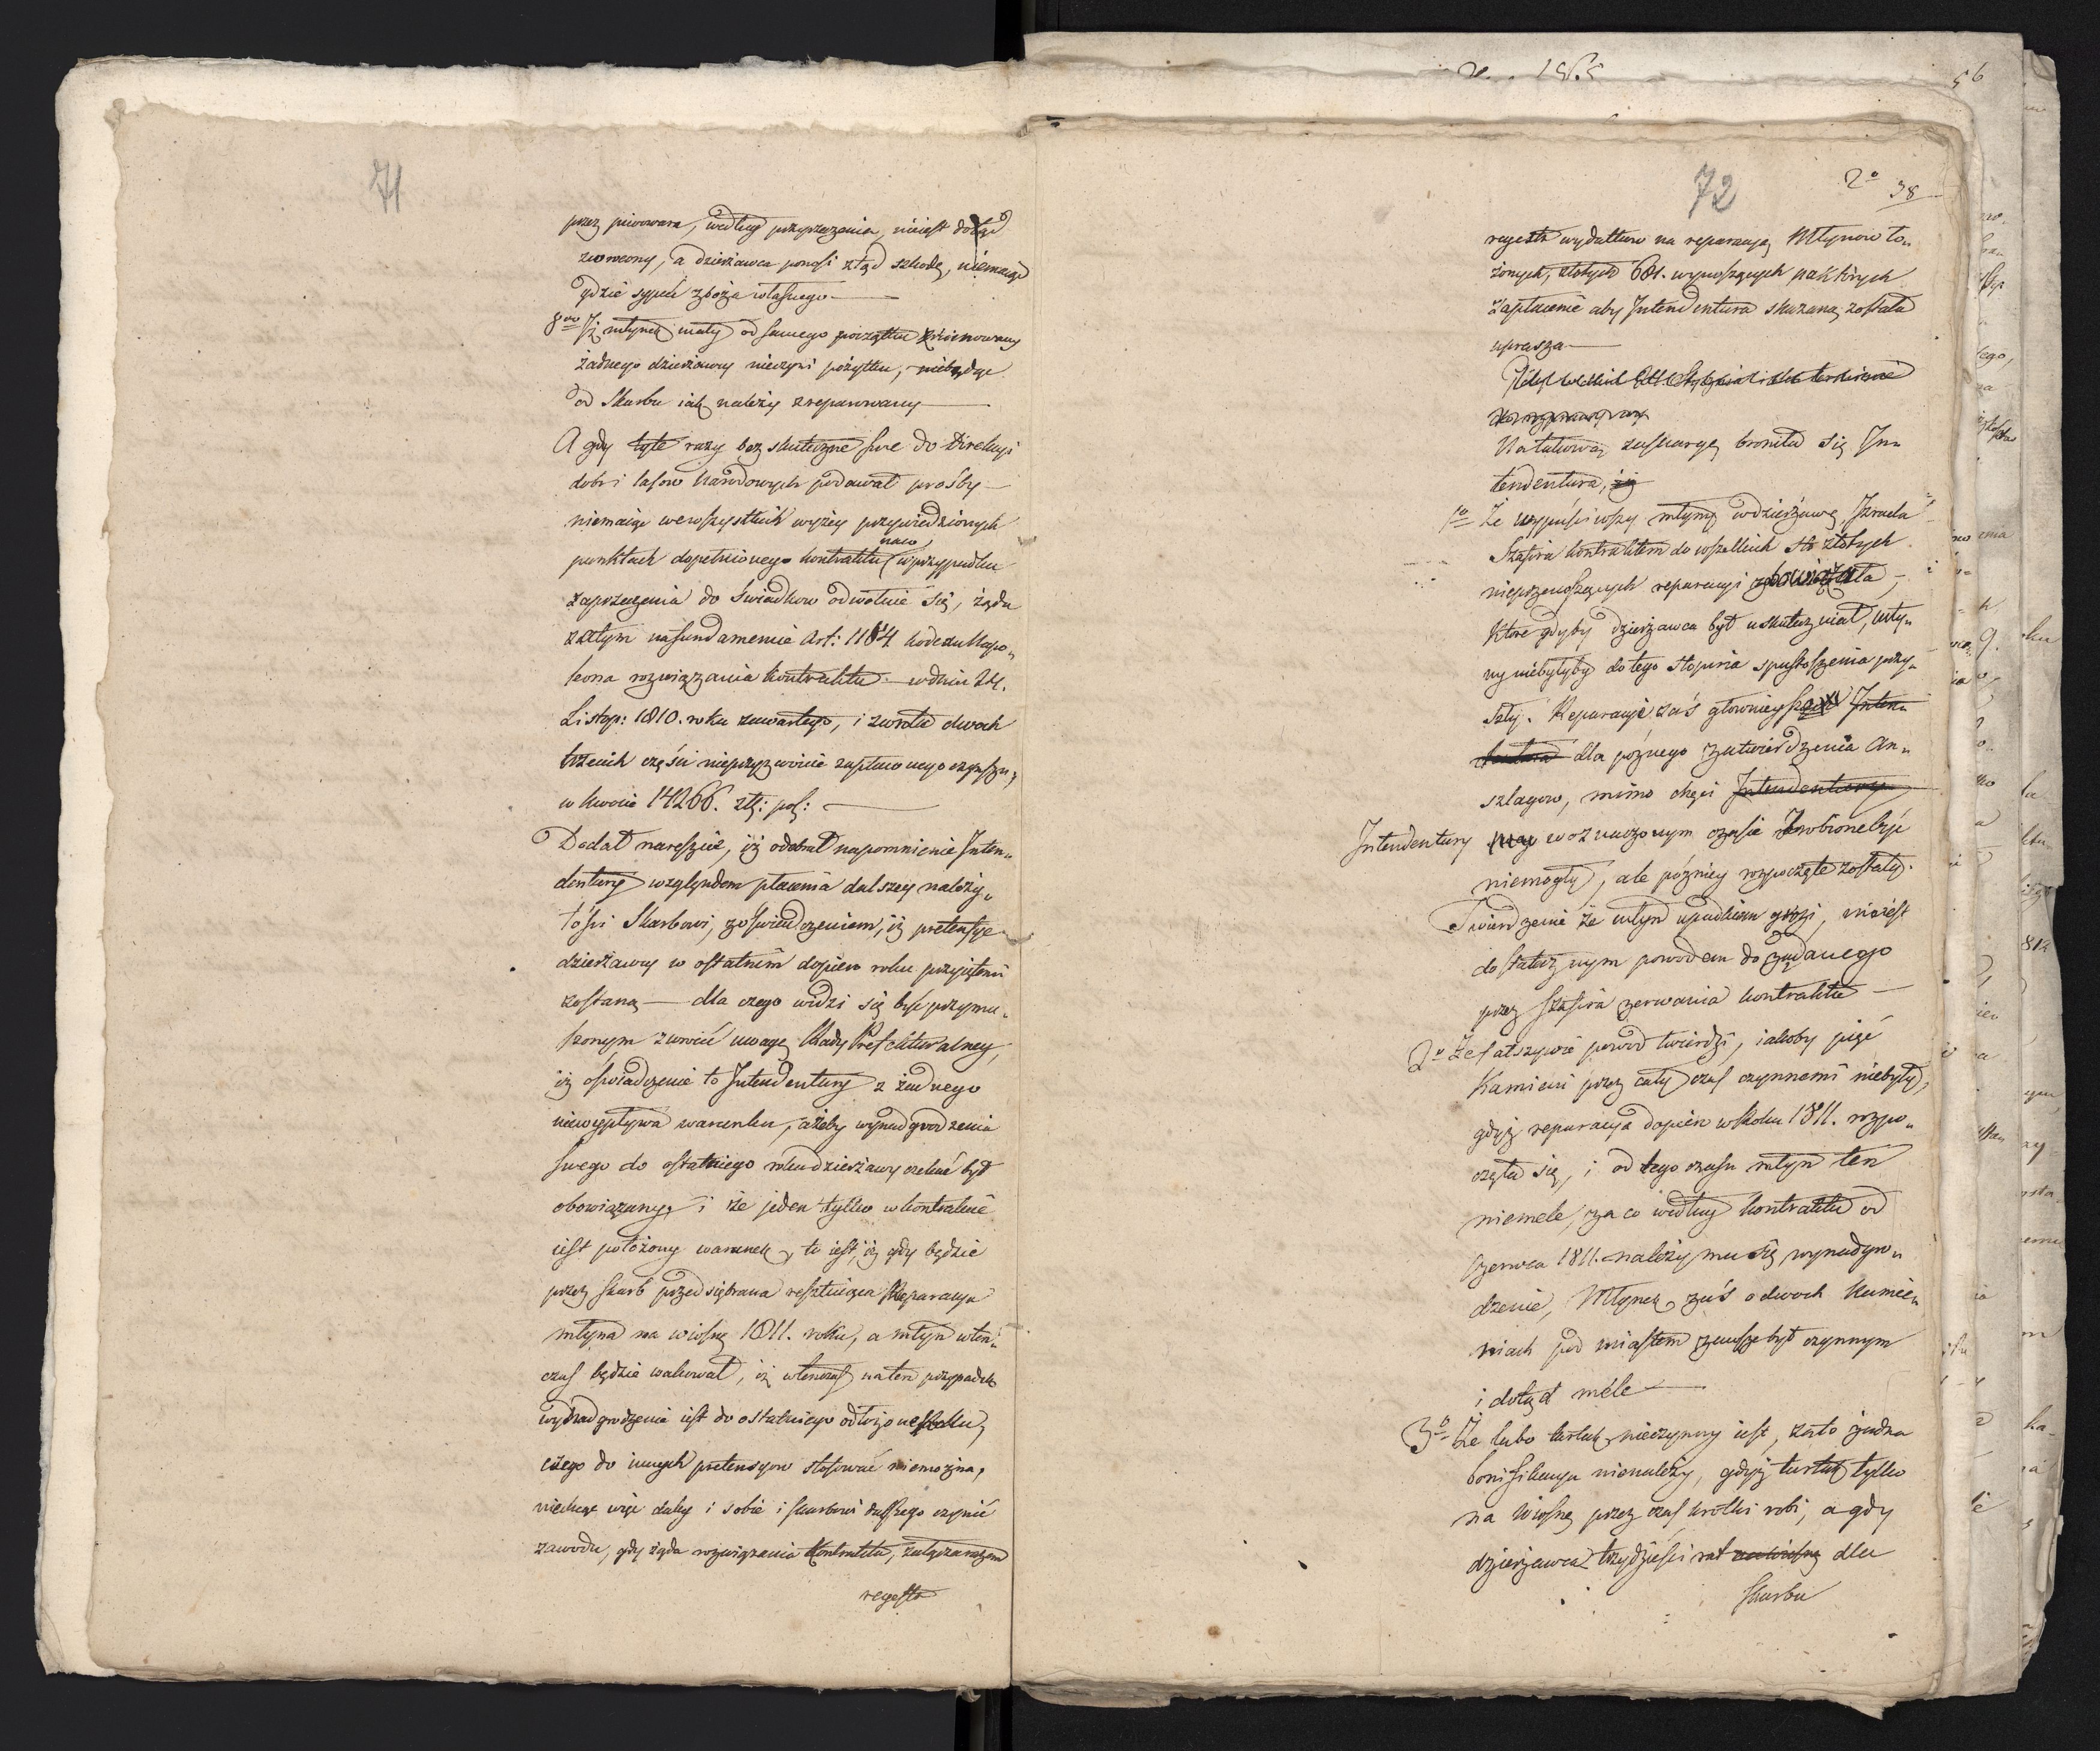 71
przez piwowara, według przyrzeczenia, nieiest dotąd
zwrocony, a dzierżawca ponosi ztąd szkodę, niemaiąc
gdzie sypać zboża własnego
8vo Iż młynek mały od samego początku zruinowany
żadnego dzierżawcy nieczyni pożytku, niebędąc
od Skarbu iak należy zreparowany
A gdy tyle razy bez skuteczne swe do Direkcyi
dobr i lasow Narodowych podawał prośby
niemaiąc wewszystkich wyżey przywiedzionych
punktach dopełnionego kontraktu w przypadku
zaprzeczenia do świadkow odwołuie się, żąda
zatym nafundamencie Art: 1184 kodexu Napo„
leona rozwiązania kontraktu w dniu 24.
Listop: 1810. roku zawartego, i zwrotu dwoch
trzecich części nieprzyzwoicie zapłaconego czynszu,
w kwocie 14266. złł: pol:
Dodał nareszcie, iż odebrał napomnienie Inten„
dentury względem płacenia dalszey należy„
tości Skarbowi, zoświadczeniem, iż pretensye
dzierżawcy w ostatnim dopiero roku przyiętemi
zostaną — dla czego widzi się być przymu„
szonym zwrócić uwagę Rady Prefekturalney,
iż oświadczenie to Intendentury z żadnego
niewypływa warunku, ażeby wynadgrodzenia
swego do ostatniego roku dzierżawy czekać był
obowiązany, i że jeden tylko w kontrakcie
iest położony warunek, to iest, iż gdy będzie
przez Skarb przedsiębrana resztuiąca Reparacya
młyna na wiosnę 1811. roku, a młyn wten„
czas będzie wakował, iż wtenczas na ten przypadek
wynadgrodzenie iest do ostatniego odłożone Roku,
czego do innych pretensyow stosować niemożna,
niechcąc więc daley i sobie i skarbowi dalszego czynić
zawodu, gdy żąda rozwiązania Kontraktu, załącza razem
regestr
72
2o 38
regestr wydatkow na reparacyą Młynow ło„
żonych, złotych 681. wynoszących na których
zapłacenie aby Intendentura skazaną została
uprasza
Na takową zaskargę broniła się In„
tendentura, iż
1o Że wypuściwszy młyny w dzierżawę, Izraela
Szafira kontraktem do wszelkich sto złotych
nieprzenoszących reparacyi zobowiązała,
Które gdyby dzierżawca był uskuteczniał, młyn„
ny niebyłyby do tego stopnia spustoszenia przy„
szły. Reparacye zaś głowniejsze Inten„
dla późnego zatwierdzenia An„
szlagow, mimo chęci Intendentury
Intendentury w oznaczonym czasie zrobione być
niemogły, ale poźniey rozpoczęte zostały.
Twierdzenie że młyn upadkiem grozi, nieiest
dostatecznym powodem do żądanego
przez Szafira zerwania kontraktu
2o Że fałszywie powod twierdzi, iakoby pięć
Kamieni przez cały czas czynnemi niebyły,
gdyż reparacya dopiero w Roku 1811. rozpo„
częła się, i od tego czasu młyn ten
niemele, za co według kontraktu od
Czerwca 1811. należy mu się wynadgro„
dzenie, Młynek zaś o dwoch Kamie„
niach pod miastem zawsze był czynnym
i dotąd mele
3o Że lubo tartak nieczynny iest, za to żadna
bonifikacya nienależy, gdyż tartak tylko
na Wiosnę przez czas krotki robi, a gdy
dzierżawca trzydzieści na wiosnę dla
Skarbu